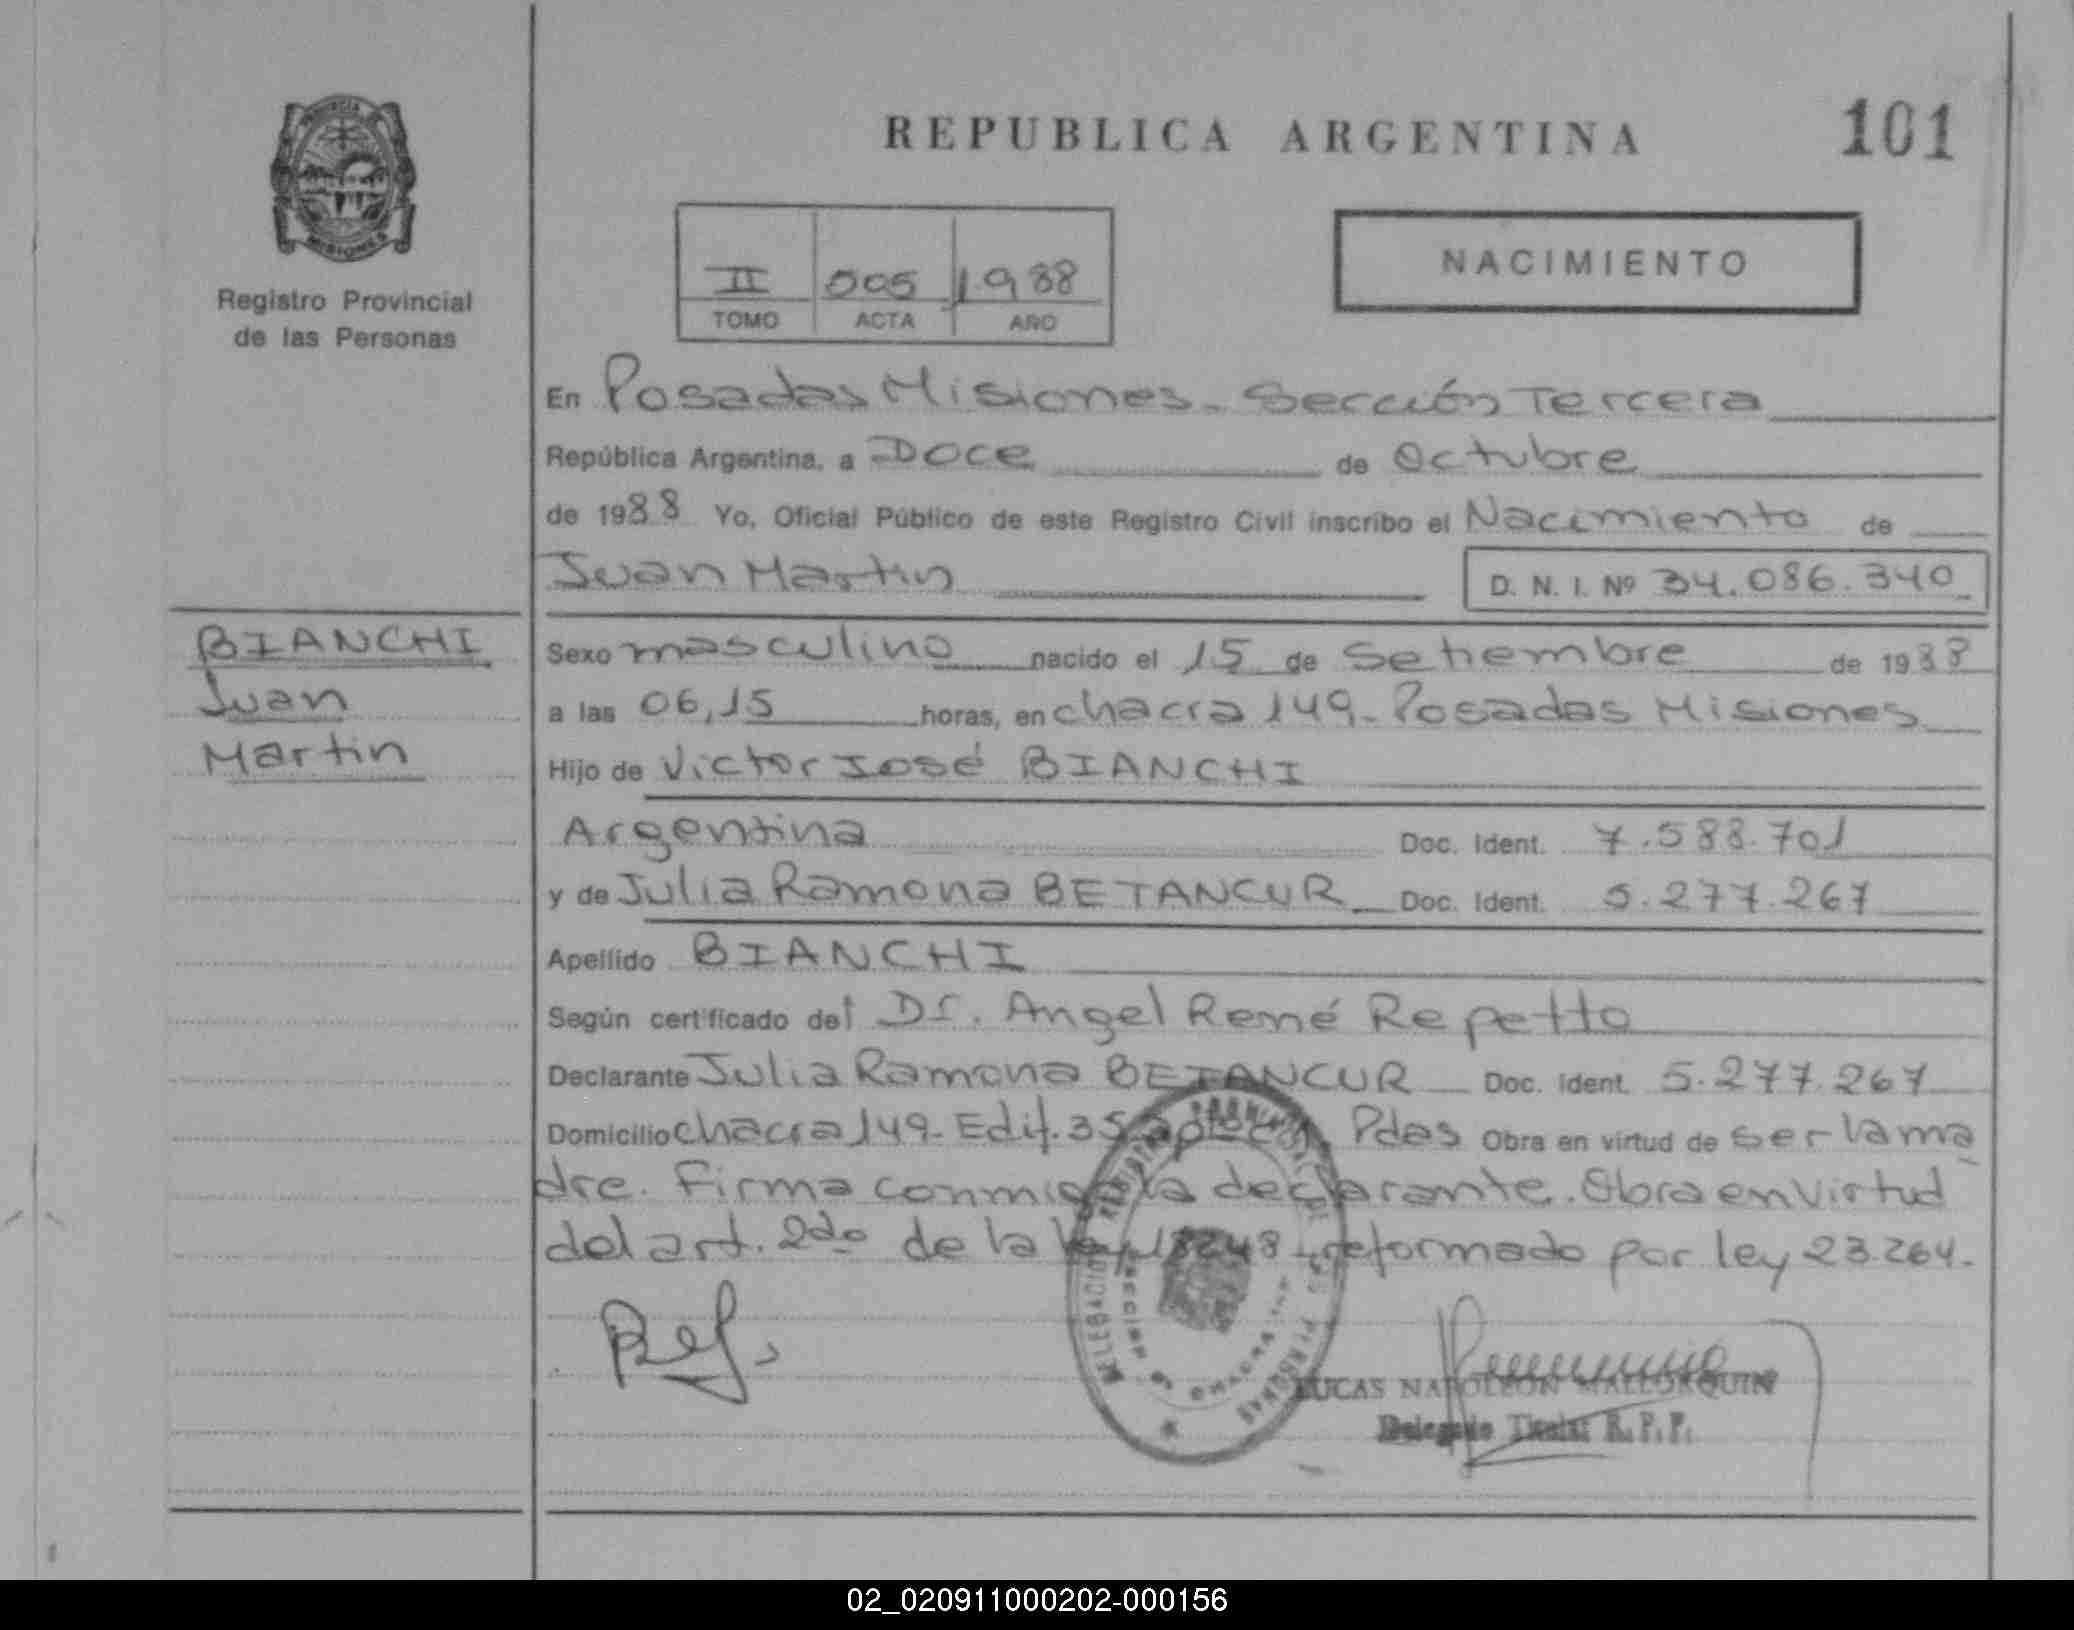 PROVINCIA
MISIONES
Registro Provincial
de las Personas
REPUBLICA ARGENTINA
101
II 005 1988
TOMO ACTA AÑO
NACIMIENTO
En Posadas Misiones - Sección Tercera
República Argentina, a Doce de Octubre
de 1988 Yo, Oficial Público de este Registro Civil inscribo el Nacimiento de
Juan Martin D. N. I. Nº 34.086.340
BIANCHI
Juan
Martin
Sexo masculino nacido el 15 de Setiembre de 1988
a las 06,15 horas, en chacra 149- Posadas Misiones
Hijo de Victor José BIANCHI
Argentina Doc. Ident. 7.588.701
y de Julia Ramona BETANCUR Doc. Ident. 5.277.267
Apellido BIANCHI
Según certificado del Dr. Angel René Repetto
Declarante Julia Ramona BETANCUR Doc. Ident. 5.277.267
Domicilio chacra 149- Edif. 35 Pdas Obra en virtud de ser la ma
dre. Firma conmigo la declarante. Obra en virtud
del art. 2do de la ley 18248 reformado por ley 23.264.
LUCAS NAPOLEON MALLORQUIN
Delegado Titular R. P. P.
02_020911000202-000156